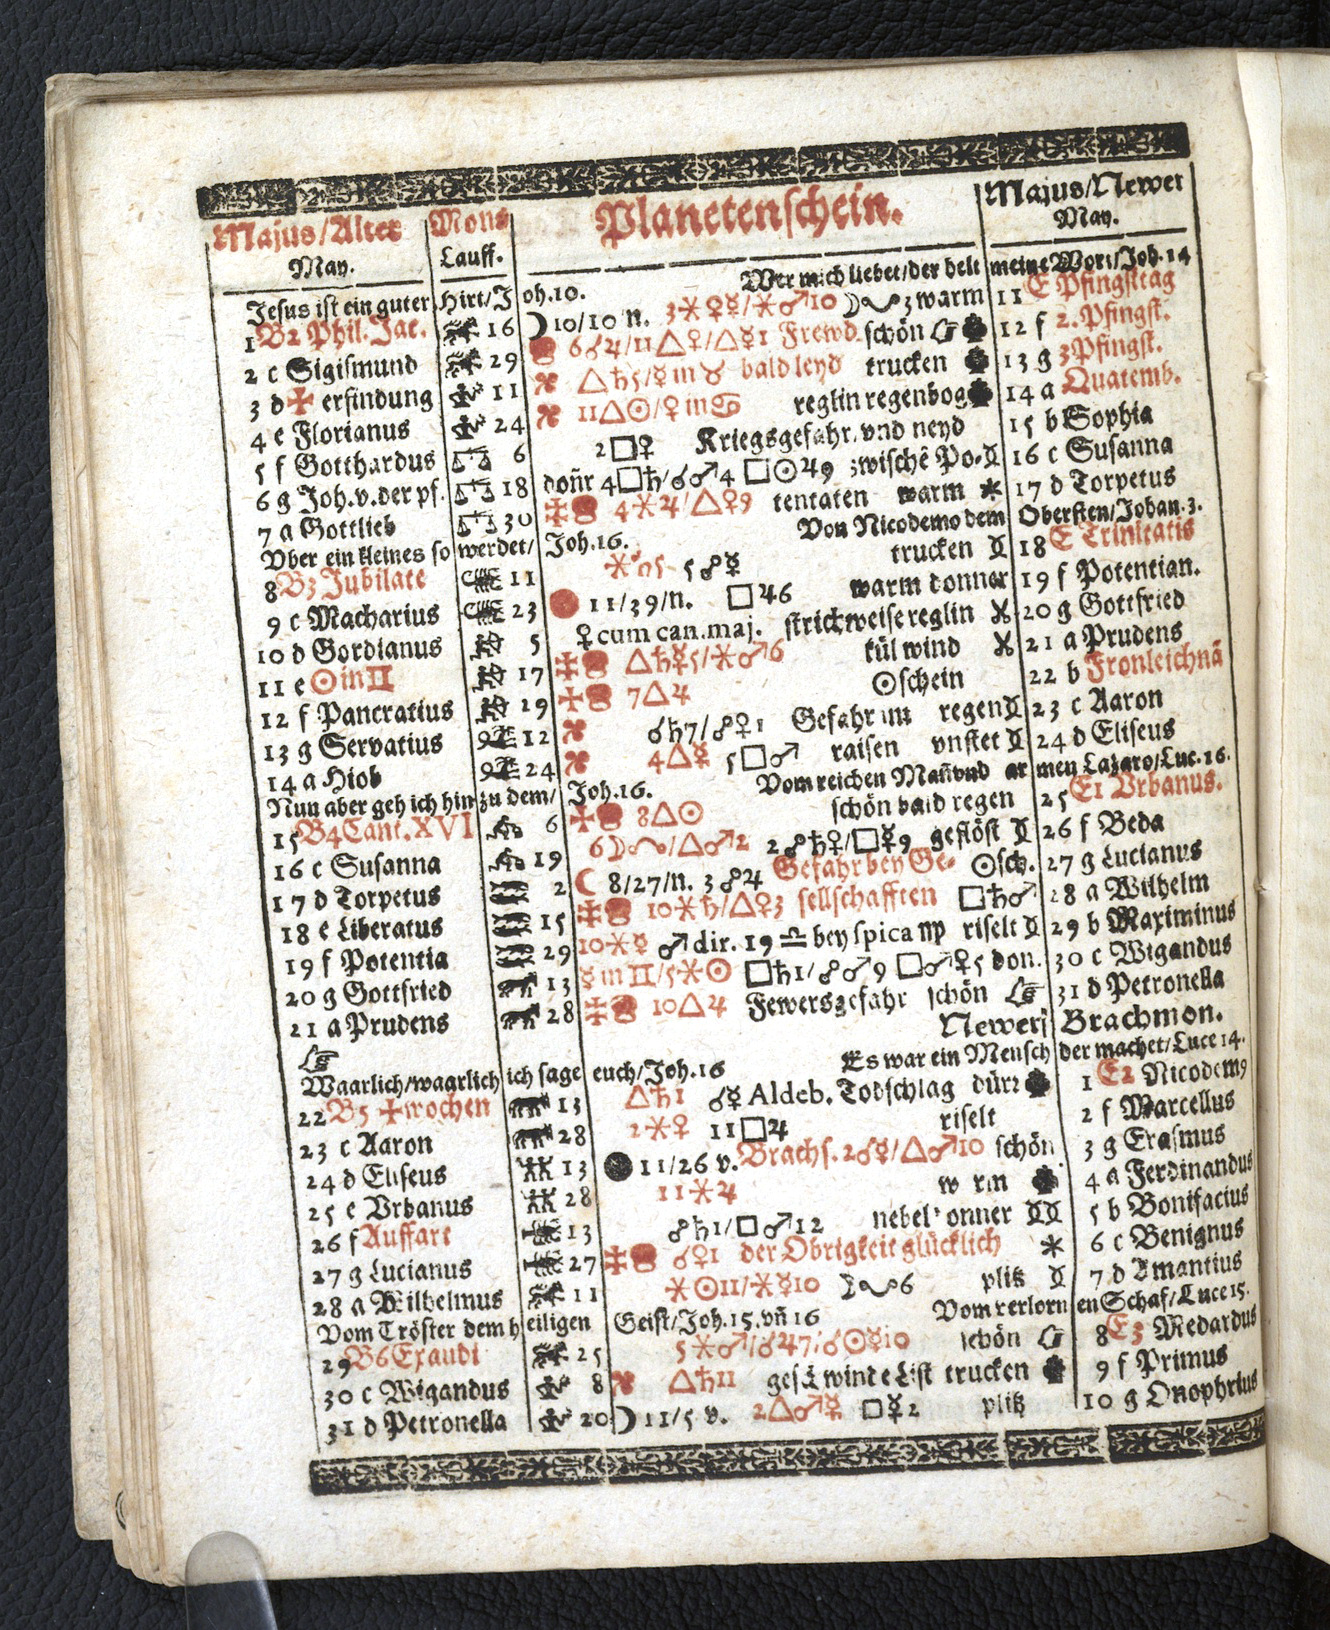 Majus/Alter Mons Planetenschein. Majus/Newer
May. Lauff. May.
Wer mich liebet/der helt meine Wort/Joh. 14
Jesus ist ein guter Hirt/Joh. 10.
1 B2 Phil. Jac. 16 ☽ 10/10 n. 3⚹♀☿/⚹♂10 3 warm 11 E Pfingsttag
2 c Sigismund 29 6☌♃/11△♀/△☿1 Frewd schön 12 f 2. Pfingst.
3 d ✠ erfindung 11 △♄5/☿ in ♉ bald leyd trucken 13 g 3 Pfingst.
4 e Florianus 24 11△☉/♀ in ♋ reglin regenbog 14 a Quatemb.
5 f Gotthardus 6 2□♀ Kriegsgefahr, vnd neyd 15 b Sophia
6 g Joh. v. der pf. 18 doñr 4□♄/☌♂4 □☉♃9 zwischẽ Po- 16 c Susanna
7 a Gottlieb 30 4⚹♃/△♀9 tentaten warm ⚹ 17 d Torpetus
Von Nicodemo dem Obersten/Johan. 3.
Vber ein kleines so werdet/ Joh. 16.
8 B3 Jubilate 11 5☍☿ trucken 18 E Trinitatis
9 c Macharius 23 11/39/n. □♃6 warm donner 19 f Potentian.
10 d Gordianus 5 ♀ cum can. maj. strichweise reglin 20 g Gottfried
11 e ☉ in ♊ 17 △♄☿5/⚹♂6 kül wind 21 a Prudens
12 f Pancratius 29 7△♃ ☉schein 22 b Fronleichnã
13 g Servatius 12 ☌♄7/☍♀1 Gefahr im regen 23 c Aaron
14 a Hiob 24 4△☿ 5□♂ raisen vnstet 24 d Eliseus
Vom reichen Mañ vnd armen Lazaro/Luc. 16.
Nun aber geh ich hin zu dem/ Joh. 16.
15 B4 Cant. XVI 6 8△☉ schön bald regen 25 E1 Vrbanus.
16 c Susanna 19 △♂2 2☍♄♀/□☿9 geflöst 26 f Beda
17 d Torpetus 2 ☾ 8/27/n. 3☍♃ Gefahr bey Ge- ☉sch. 27 g Lucianus
18 e Liberatus 15 10⚹♄/△♀3 sellschafften □♄♂ 28 a Wilhelm
19 f Potentia 29 10⚹☿ ♂ dir. 19 ♎ bey spica ♍ riselt 29 b Maximinus
20 g Gottsried 13 ☿ in ♊/5⚹☉ □♄1/☍♂9 □♂♀5 don. 30 c Wigandus
21 a Prudens 28 10△♃ Fewersgefahr schön 31 d Petronella
Newer Brachmon.
Es war ein Mensch der machet/Luce 14.
Waarlich/waarlich ich sage euch/Joh. 16
22 B5 ✠wochen 13 △♄1 ☌☿ Aldeb. Todschlag dürr 1 E2 Nicodem9
23 c Aaron 28 2⚹♀ 11□♃ riselt 2 f Marcellus
24 d Eliseus 13 11/26 v. Brachs. 2☌☿/△♂10 schön 3 g Erasmus
25 e Vrbanus 28 11⚹♃ 4 a Ferdinandus
26 f Auffart 13 ☍♄1/□♂12 5 b Bonifacius
27 g Lucianus 27 ☌♀1 der Obrigkeit glücklich ⚹ 6 c Benignus
28 a Wilhelmus 11 ⚹☉11/⚹☿10 6 plitz 7 d Amantius
Vom verlornen Schaf/Luce 15.
Vom Tröster dem heiligen Geist/Joh. 15. vñ 16
29 B6 Exaudi 25 5⚹♂/☌♃7/☌☉☿10 schön 8 E3 Medardus
30 c Wigandus 8 △♄11 geschwinde List trucken 9 f Primus
31 d Petronella 20 ☽ 11/5 v. 2△♂☿ □☿2 plitz 10 g Onophrius